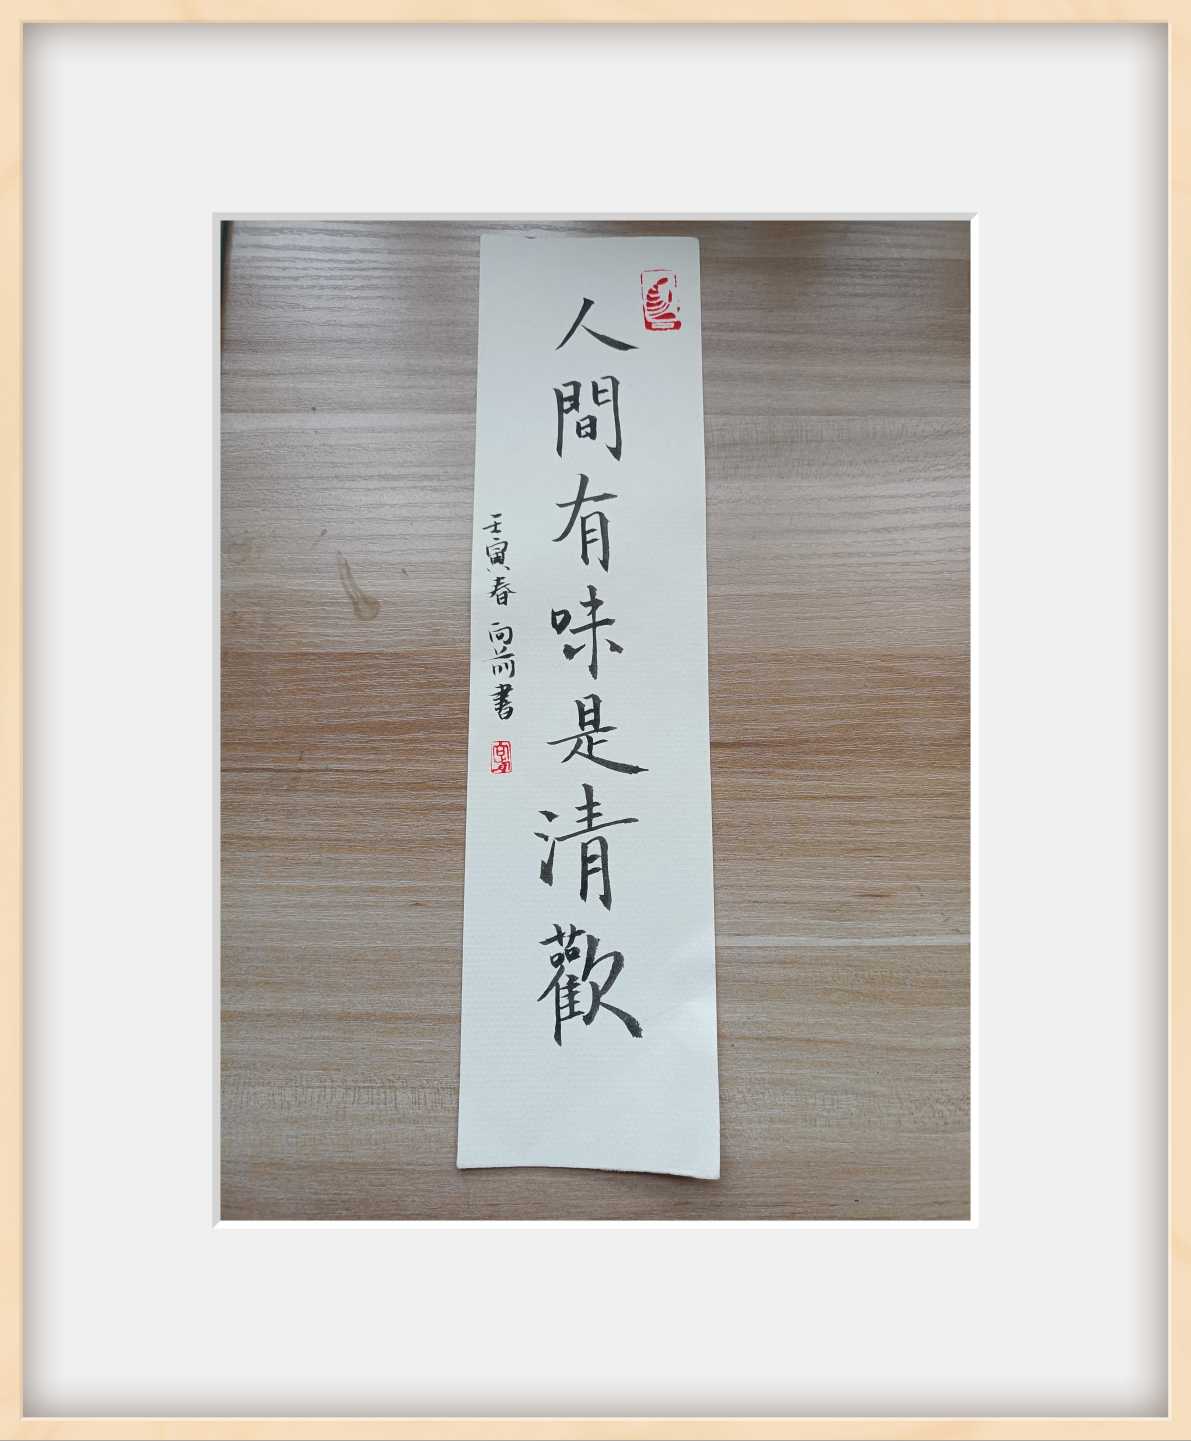 人間有味是清歡
壬寅春向前書